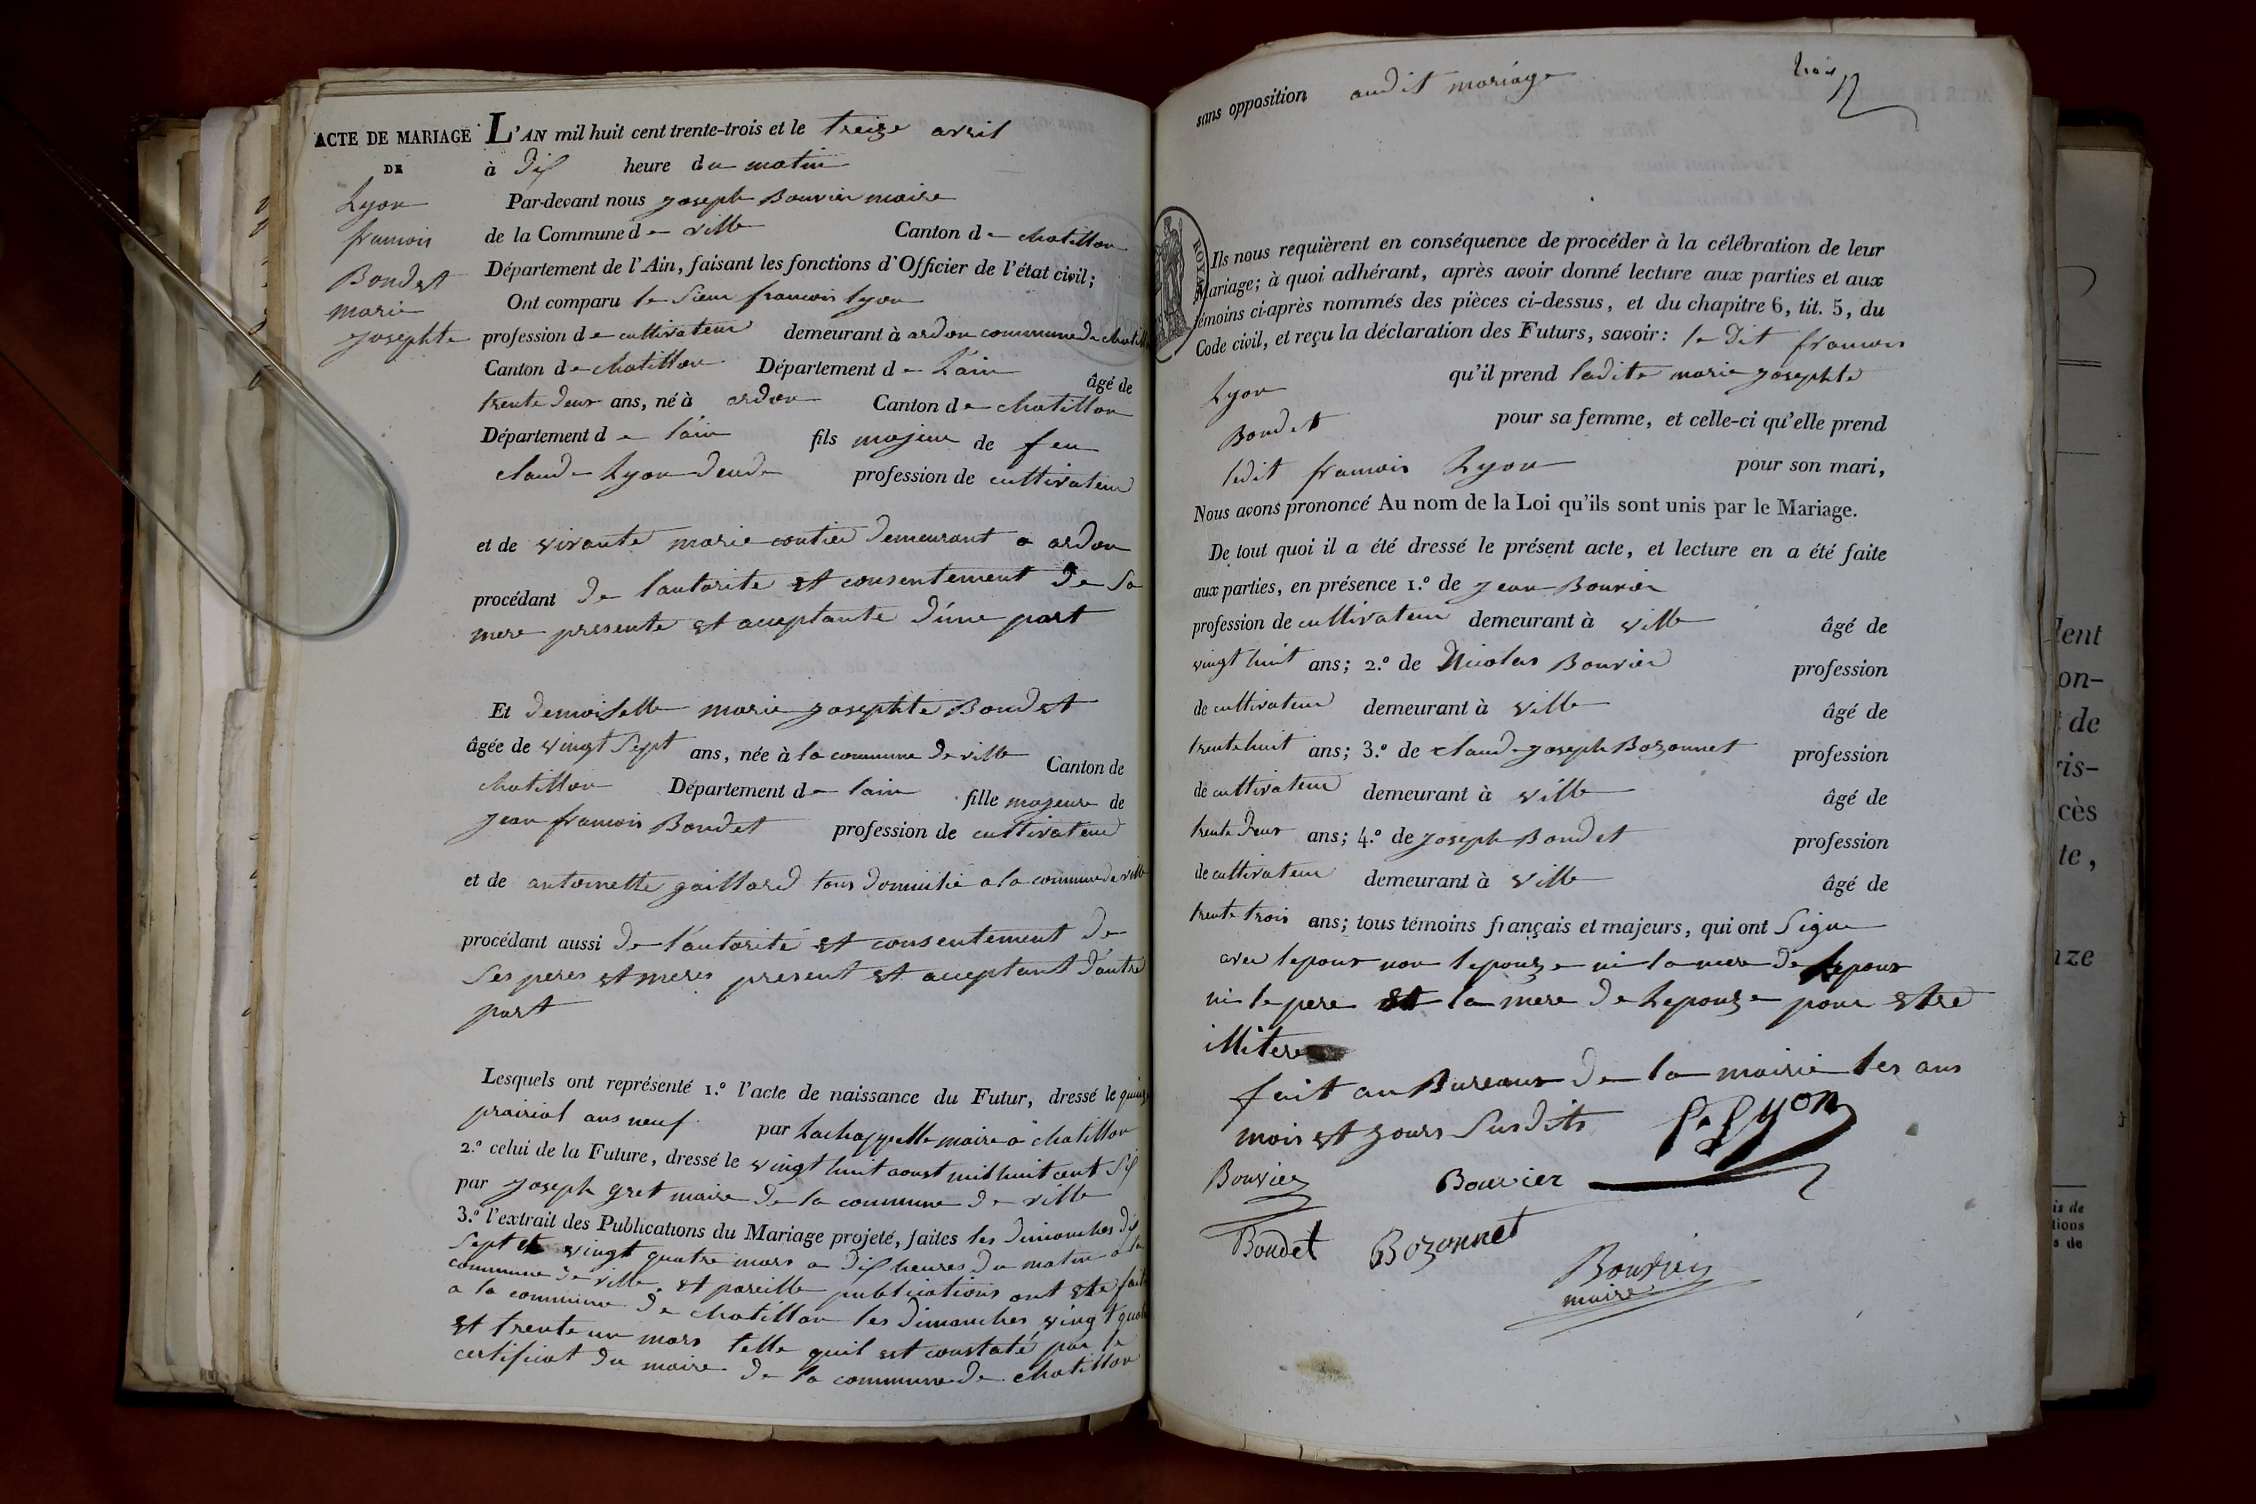 ACTE DE MARIAGE
DE
Lyon
francois
Boudet
marie
josephte
L'AN mil huit cent trente-trois et le treize avril
à dix heure du matin
Par-devant nous joseph Bouvier maire
de la Commune de ville Canton de chatillon
Département de l'Ain, faisant les fonctions d'Officier de l'état civil;
Ont comparu le sieur francois lyon
profession de cultivateur demeurant à ardon commune de chatill
Canton de chatillon Département de L'ain âgé de
trente deux ans, né à ardon Canton de chatillon
Département de l'ain fils majeur de feu
claude Lyon profession de cultivateur
et de vivante marie demeurant a ardon
procédant de lautorite et consentement de sa
mere presente et acceptante d'une part
Et demoiselle marie josephte Boudet
âgée de vingt sept ans, née à la commune de ville Canton de
chatillon Département de lain fille majeure de
jean francois Boudet profession de cultivateur
et de antoinette gaillard tous domicilié a la commune de ville
procédant aussi de l'autorité et consentement de
ses peres et meres present et acceptant d'autre
part
Lesquels ont représenté 1.º l'acte de naissance du Futur, dressé le quinze
prairial ans neuf par Lachappelle maire a chatillon
2.º celui de la Future, dressé le vingt huit aoust mil huit cent six
par joseph gret maire de la commune de ville
3.º l'extrait des Publications du Mariage projeté, faites les dimanches dix
sept et vingt quatre mars a dix heures du matin a la
commune de ville. et pareille publications ont ete faite
a la commune de chatillon les dimanches vingt quatre
et trente un mars telle quil est constaté par le
certificat du maire de la commune de chatillon
sans opposition audit mariage
trois
ROYAL
Ils nous requièrent en conséquence de procéder à la célébration de leur
Mariage; à quoi adhérant, après avoir donné lecture aux parties et aux
témoins ci-après nommés des pièces ci-dessus, et du chapitre 6, tit. 5, du
Code civil, et reçu la déclaration des Futurs, savoir: le dit francois
Lyon qu'il prend ladite marie josephte
Boudet pour sa femme, et celle-ci qu'elle prend
ledit francois Lyon pour son mari,
Nous avons prononcé Au nom de la Loi qu'ils sont unis par le Mariage.
De tout quoi il a été dressé le présent acte, et lecture en a été faite
aux parties, en présence 1.º de jean Bouvier
profession de cultivateur demeurant à ville âgé de
vingt huit ans; 2.º de Nicolas Bouvier profession
de cultivateur demeurant à ville âgé de
trente huit ans; 3.º de claude joseph Bozonnet profession
de cultivateur demeurant à ville âgé de
trente deux ans; 4.º de joseph Boudet profession
de cultivateur demeurant à ville âgé de
trente trois ans; tous témoins français et majeurs, qui ont signe
avec lepoux non lepouze ni la mere de lepoux
ni le pere et la mere de Lepouze pour etre
illitere
fait au Bureaux de la mairie les ans
mois et jours susdits Lyon
Bouvier Bouvier
Boudet Bozonnet
Bouvier
maire
dent
on-
de
ris-
cès
te,
nze
is de
tions
s de